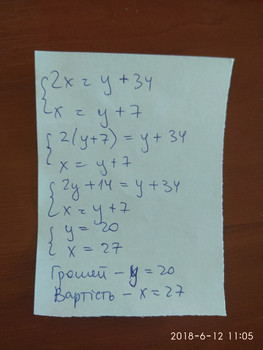 2x = y + 34
x = y + 7
2(y+7) = y + 34
x = y + 7
2y + 14 = y + 34
x = y + 7
y = 20
x = 27
Грошей – y = 20
Вартість – x = 27
2018-6-12 11:05